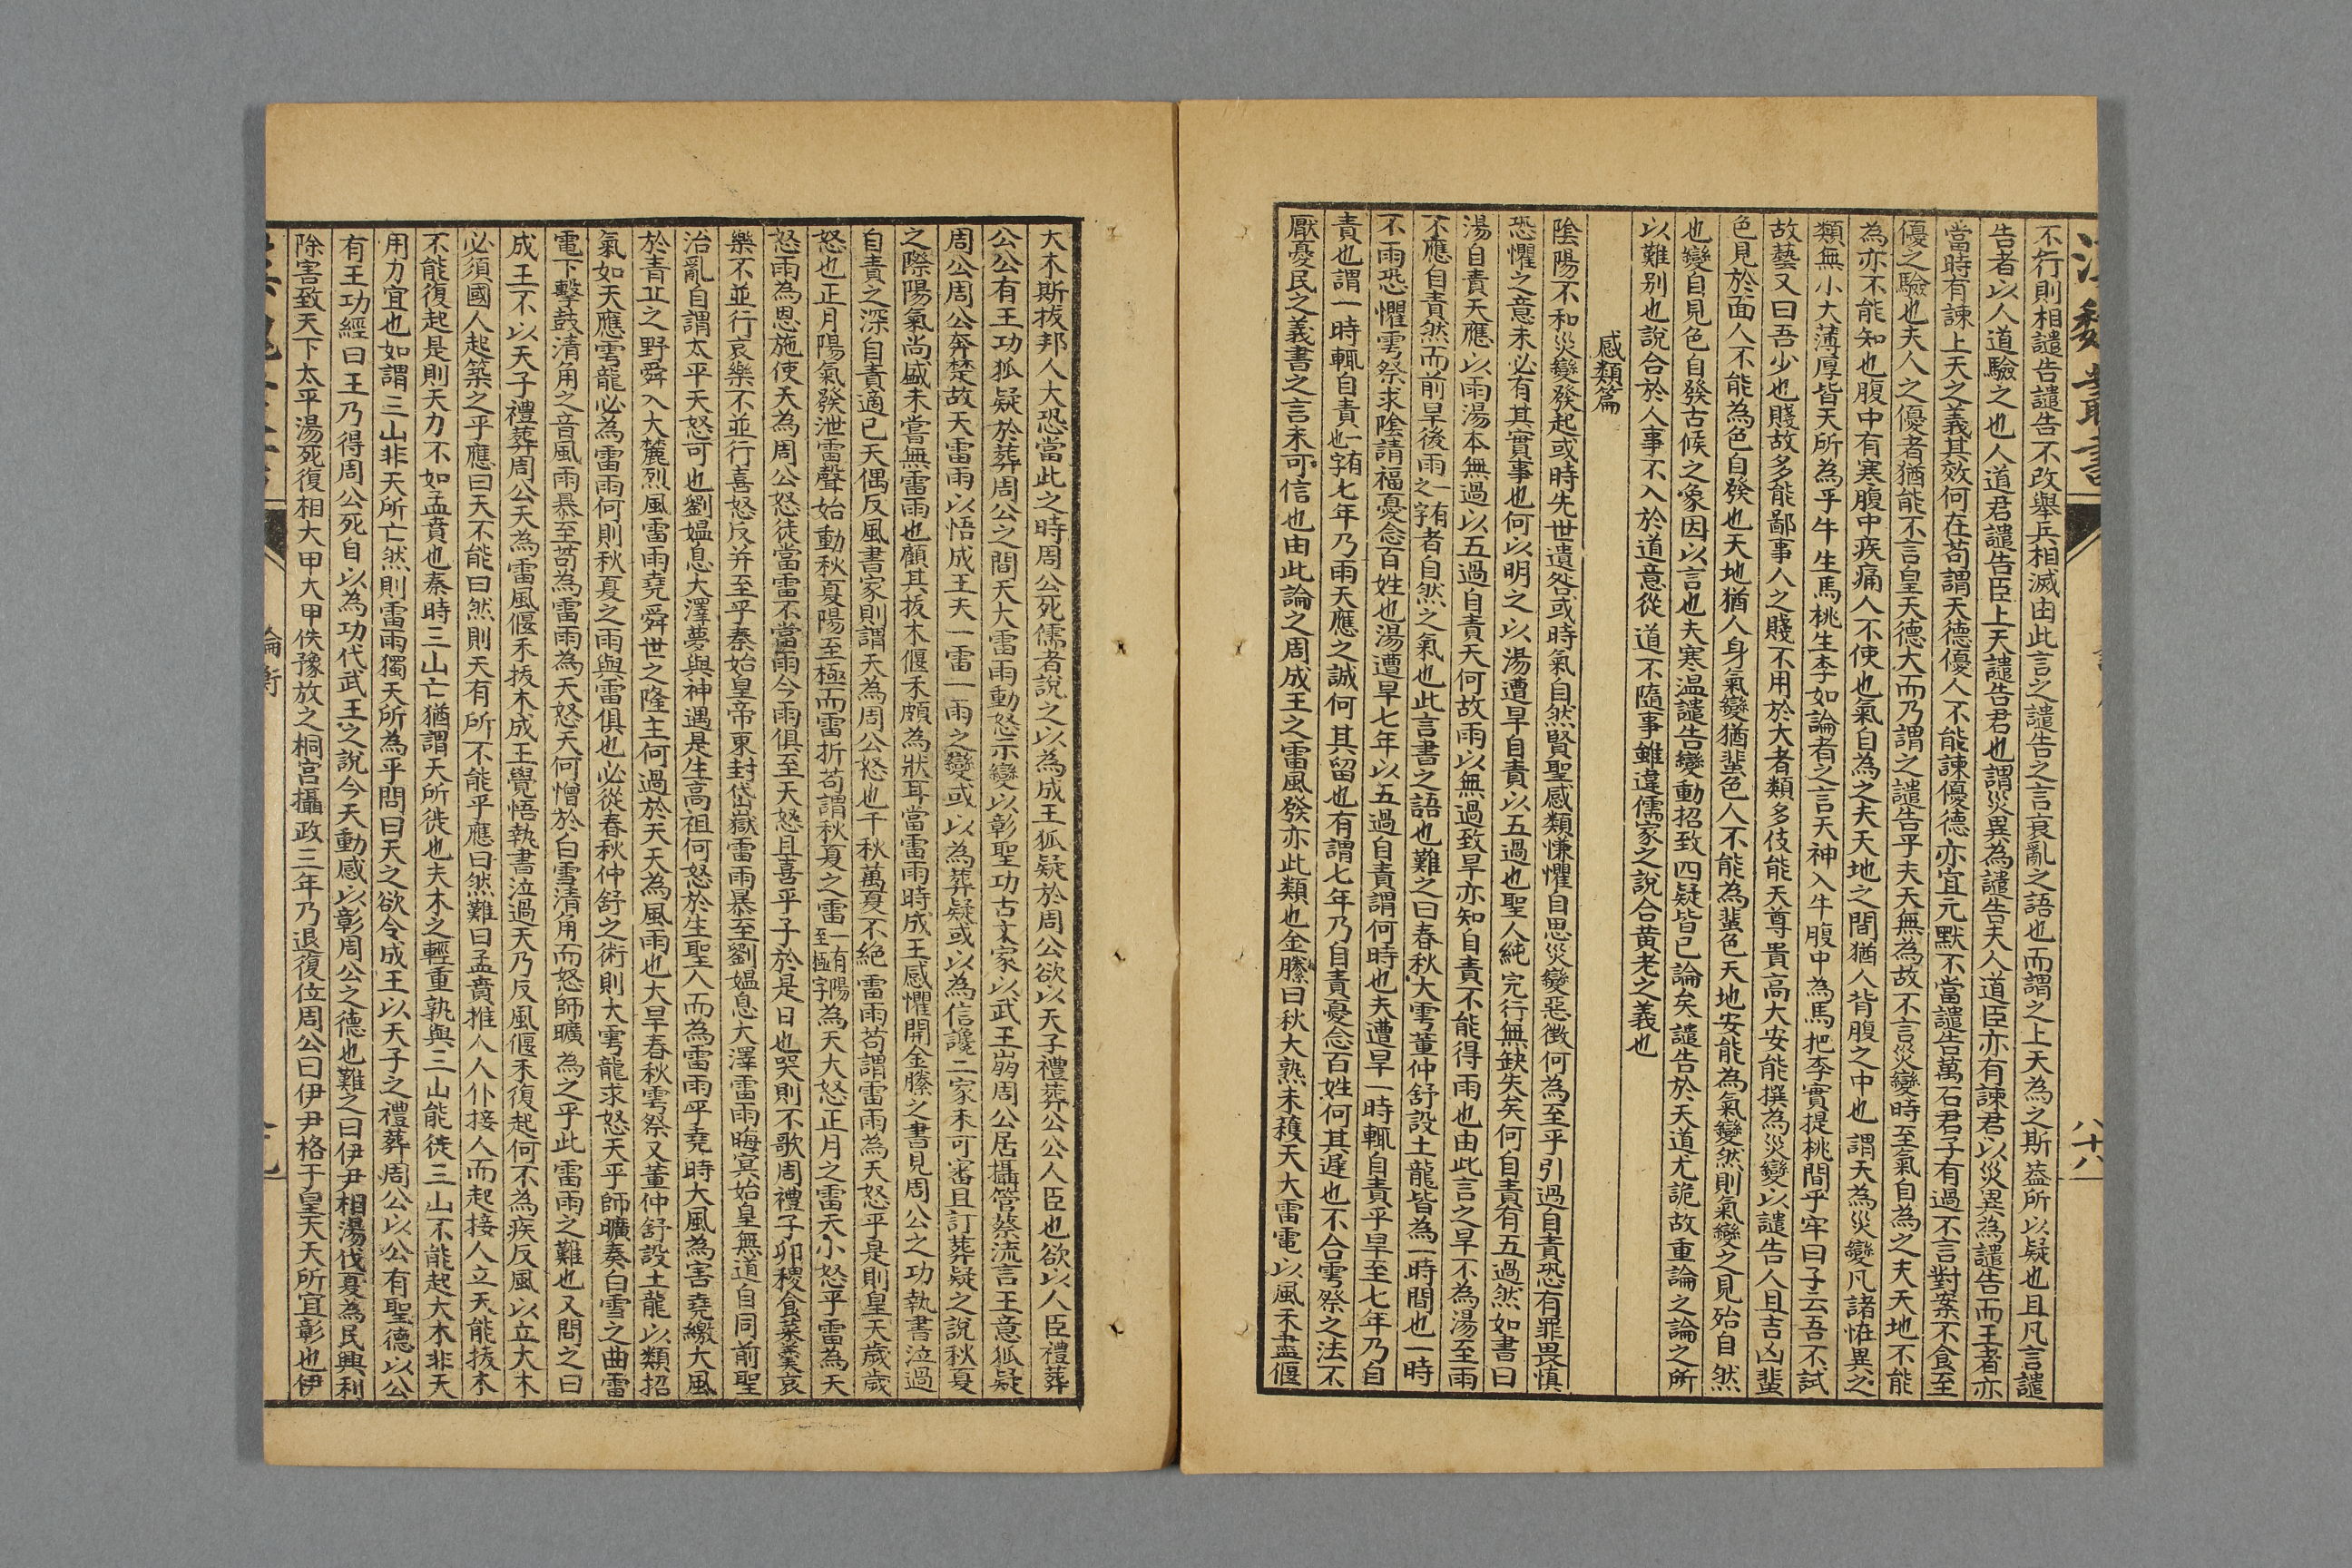 不行則相譴告譴告不改舉兵相滅由此言之譴告之言衰亂之語也而謂之上天為之斯葢所以疑也且凡言譴
告者以人道驗之也人道君譴告臣上天譴告君也謂災異為譴告夫人道臣亦有諫君以災異為譴告而王者亦
當時有諫上天之義其效何在苟謂天德優人不能諫優德亦宜元默不當譴告萬石君子有過不言對案不食至
優之驗也夫人之優者猶能不言皇天德大而乃謂之譴告乎夫天無為故不言災變時至氣自為之夫天地不能
為亦不能知也腹中有寒腹中疾痛人不使也氣自為之夫天地之間猶人背腹之中也謂天為災變凡諸怪異之
類無小大薄厚皆天所為乎牛生馬桃生李如論者之言天神入牛腹中為馬把李實提桃間乎牢曰子云吾不試
故藝又曰吾少也賤故多能鄙事人之賤不用於大者類多伎能天尊貴高大安能撰為災變以譴告人且吉凶蜚
色見於面人不能為色自發也天地猶人身氣變猶蜚色人不能為蜚色天地安能為氣變然則氣變之見殆自然
也變自見色自發占候之象因以言也夫寒温譴告變動招致四疑皆已論矣譴告於天道尤詭故重論之論之所
以難別也說合於人事不入於道意從道不隨事雖違儒家之說合黃老之義也
感類篇
陰陽不和災變發起或時先世遺咎或時氣自然賢聖感類慊懼自思災變惡徵何為至乎引過自責恐有罪畏慎
恐懼之意未必有其實事也何以明之以湯遭旱自責以五過也聖人純完行無缺失矣何自責有五過然如書曰
湯自責天應以雨湯本無過以五過自責天何故雨以無過致旱亦知自責不能得雨也由此言之旱不為湯至雨
不應自責然而前旱後雨一有之字者自然之氣也此言書之語也難之曰春秋大雩董仲舒設土龍皆為一時間也一時
不雨恐懼雩祭求陰請福憂念百姓也湯遭旱七年以五過自責謂何時也夫遭旱一時輒自責乎旱至七年乃自
責也謂一時輒自責一有也字七年乃雨天應之誠何其留也有謂七年乃自責憂念百姓何其遲也不合雩祭之法不
厭憂民之義書之言未可信也由此論之周成王之雷風發亦此類也金縢曰秋大熟未穫天大雷電以風禾盡偃
大木斯拔邦人大恐當此之時周公死儒者說之以為成王狐疑於周公欲以天子禮葬公公人臣也欲以人臣禮葬
公公有王功狐疑於葬周公之間天大雷雨動怒示變以彰聖功古文家以武王崩周公居攝管蔡流言王意狐疑
周公周公奔楚故天雷雨以悟成王夫一雷一雨之變或以為葬疑或以為信讒二家未可審且訂葬疑之說秋夏
之際陽氣尚盛未嘗無雷雨也顧其拔木偃禾頗為狀耳當雷雨時成王感懼開金縢之書見周公之功執書泣過
自責之深自責適已天偶反風書家則謂天為周公怒也千秋萬夏不絕雷雨苟謂雷雨為天怒乎是則皇天歲歲
怒也正月陽氣發泄雷聲始動秋夏陽至極而雷折苟謂秋夏之雷一有陽至極字為天大怒正月之雷天小怒乎雷為天
怒雨為恩施使天為周公怒徒當雷不當雨今雨俱至天怒且喜乎子於是日也哭則不歌周禮子卯稷食菜羹哀
樂不並行哀樂不並行喜怒反并至乎秦始皇帝東封岱嶽雷雨暴至劉媼息大澤雷雨晦冥始皇無道自同前聖
治亂自謂太平天怒可也劉媼息大澤夢與神遇是生高祖何怒於生聖人而為雷雨乎堯時大風為害堯繳大風
於青丘之野舜入大麓烈風雷雨堯舜世之隆主何過於天天為風雨也大旱春秋雩祭又董仲舒設土龍以類招
氣如天應雩龍必為雷雨何則秋夏之雨與雷俱也必從春秋仲舒之術則大雩龍求怒天乎師曠奏白雪之曲雷
電下擊鼓清角之音風雨暴至苟為雷雨為天怒天何憎於白雪清角而怒師曠為之乎此雷雨之難也又問之曰
成王不以天子禮葬周公天為雷風偃禾拔木成王覺悟執書泣過天乃反風偃禾復起何不為疾反風以立大木
必須國人起築之乎應曰天不能曰然則天有所不能乎應曰然難曰孟賁推人人仆接人而起接人立天能拔木
不能復起是則天力不如孟賁也秦時三山亡猶謂天所徙也夫木之輕重孰與三山能徙三山不能起大木非天
用力宜也如謂三山非天所亡然則雷雨獨天所為乎問曰天之欲令成王以天子之禮葬周公以公有聖德以公
有王功經曰王乃得周公死自以為功代武王之說今天動感以彰周公之德也難之曰伊尹相湯伐夏為民興利
除害致天下太平湯死復相大甲大甲佚豫放之桐宮攝政三年乃退復位周公曰伊尹格于皇天天所宜彰也伊
論衡